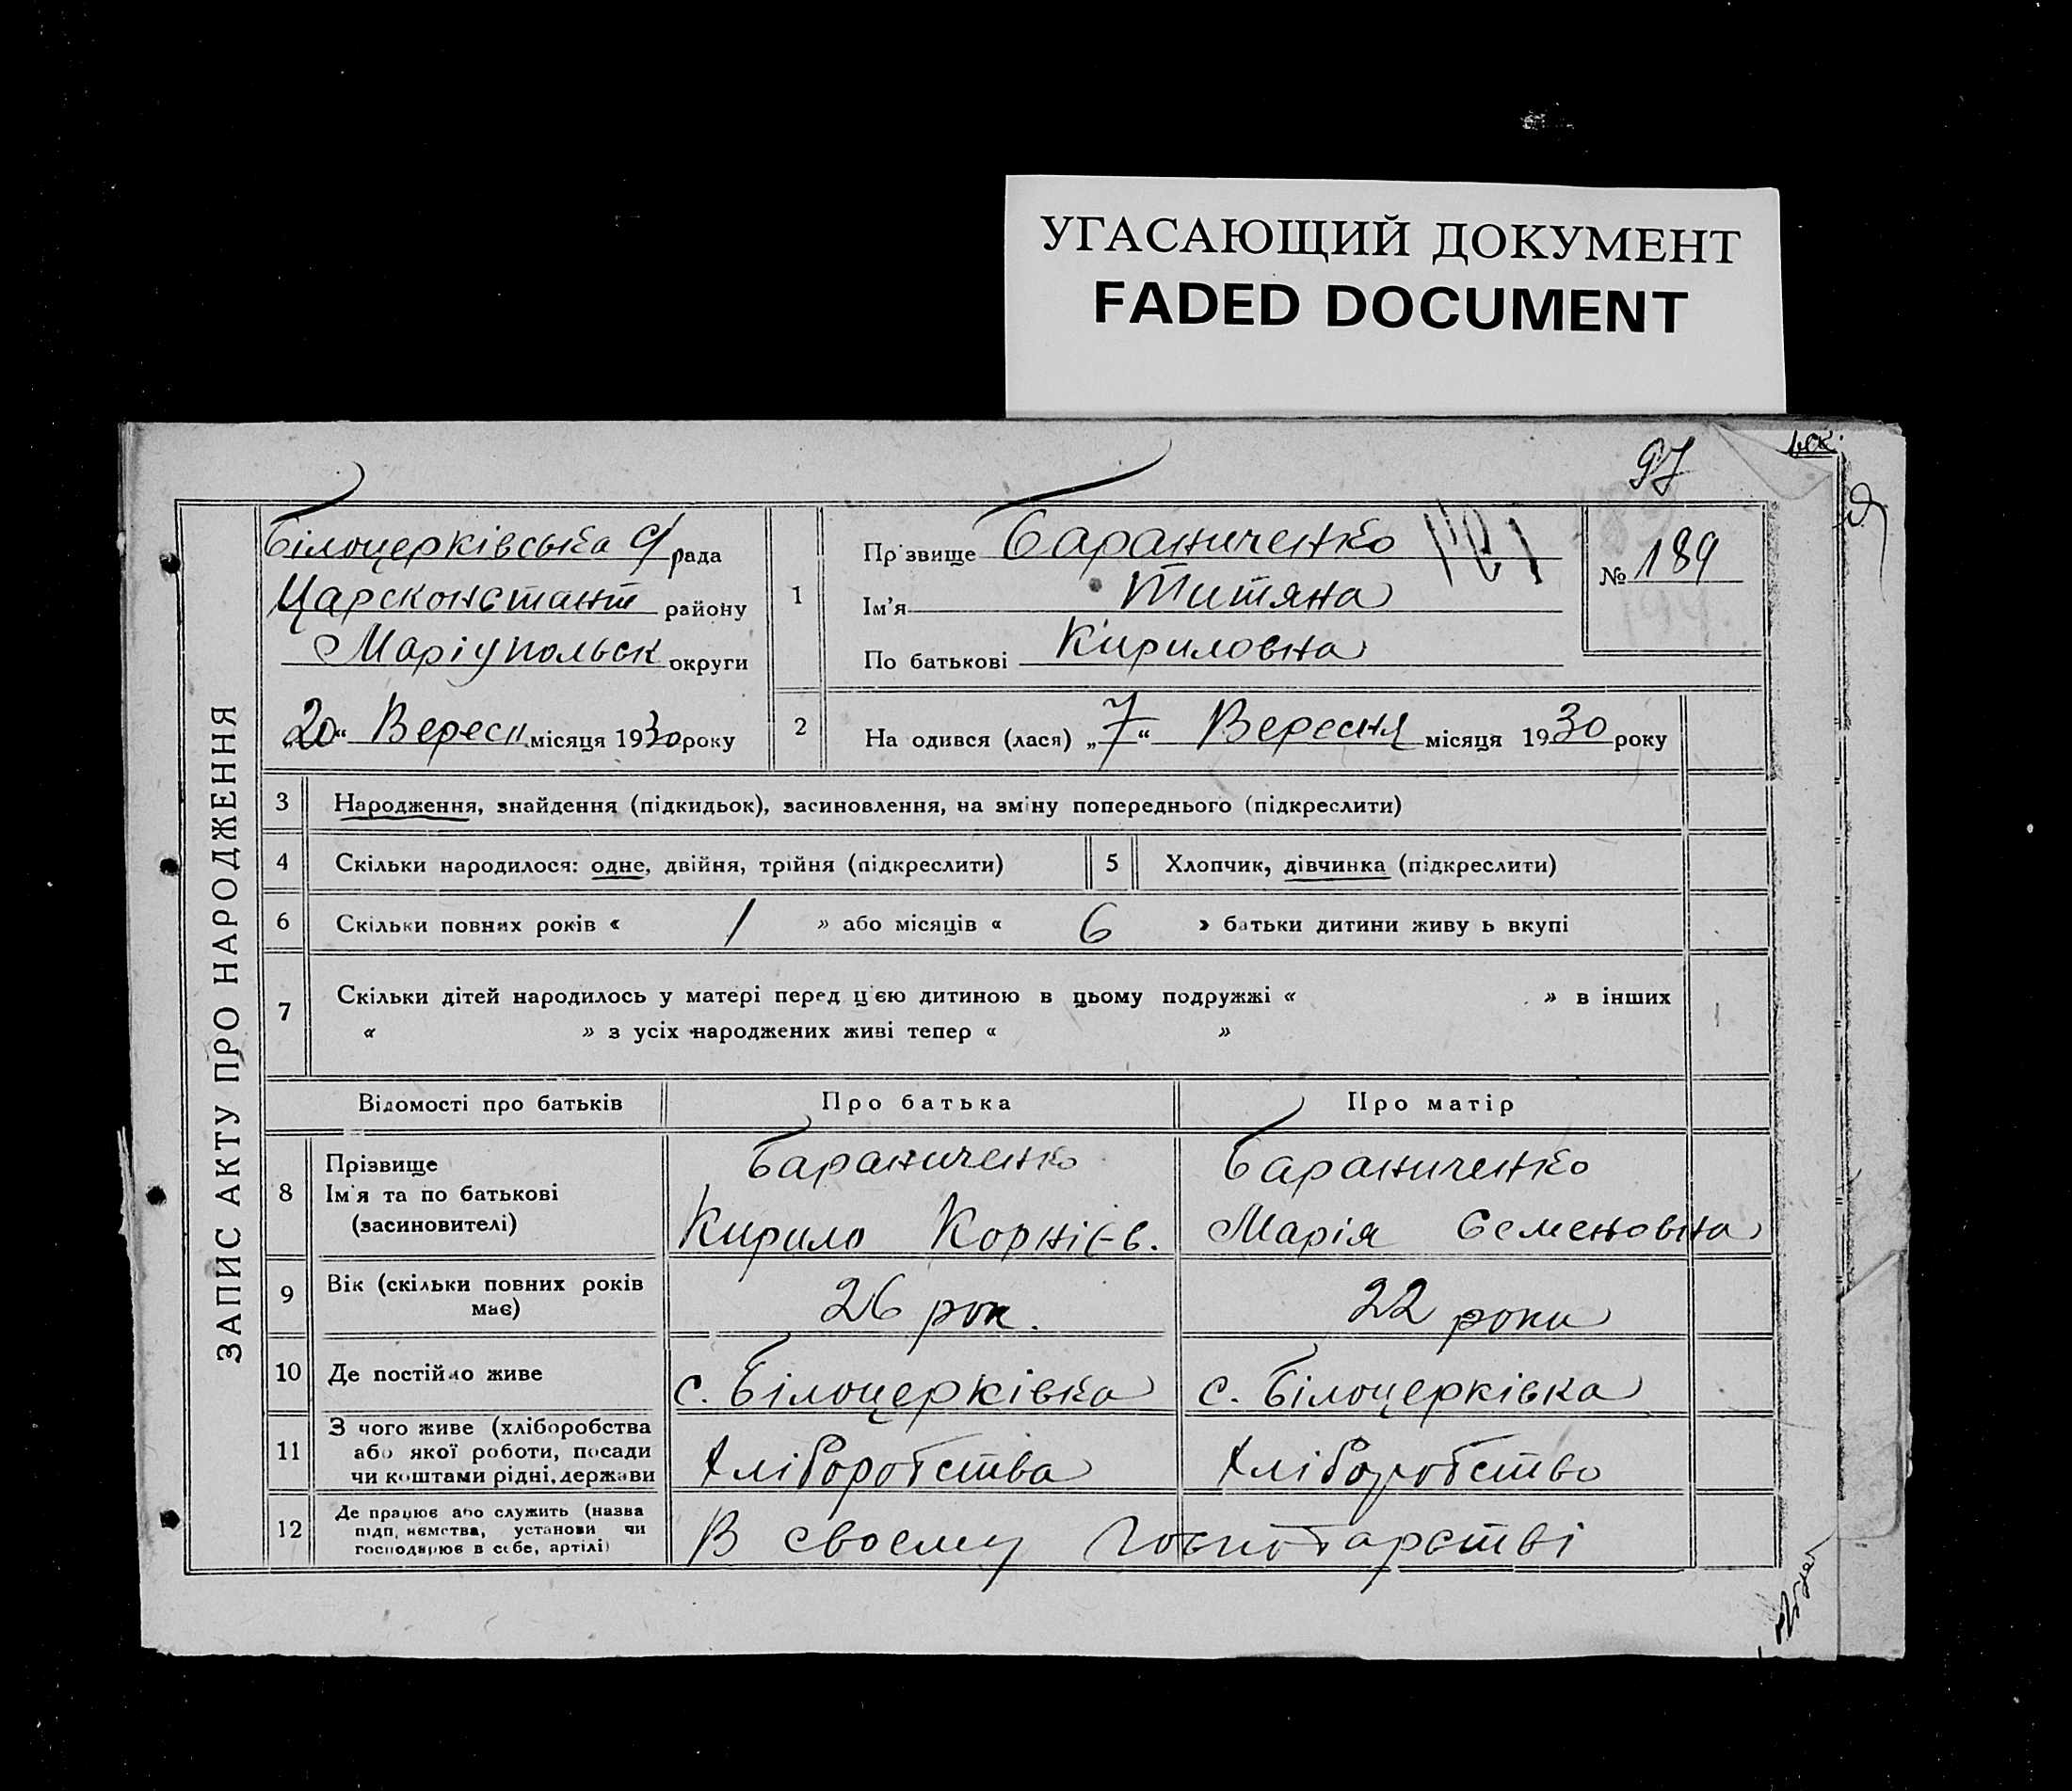 УГАСАЮЩИЙ ДОКУМЕНТ
FADED DOCUMENT
97
ЗАПИС АКТУ ПРО НАРОДЖЕННЯ
Білоцерківська с/рада
Царсконстант району
Маріупольськ округи
„20“ Вересн місяця 1930 року
1
Прізвище Бараниченко
Ім'я Титяна
По батькові Кириловна
№ 189
2
На одився (лася) „7“ Вересня місяця 1930 року
3 Народження, знайдення (підкидьок), засиновлення, на зміну попереднього (підкреслити)
4 Скільки народилося: одне, двійня, трійня (підкреслити) 5 Хлопчик, дівчинка (підкреслити)
6 Скільки повних років « 1 » або місяців « 6 » батьки дитини живу ь вкупі
7 Скільки дітей народилось у матері перед цією дитиною в цьому подружжі « » в інших
« » з усіх народжених живі тепер « »
Відомості про батьків Про батька Про матір
8 Прізвище Бараниченко Бараниченко
Ім'я та по батькові
(засиновителі) Кирило Корнієв. Марія Семеновна
9 Вік (скільки повних років
має) 26 рок. 22 роки
10 Де постійно живе с. Білоцерківка с. Білоцерківка
11 З чого живе (хліборобства
або якої роботи, посади
чи коштами рідні, держави Хліборобства Хліборобство
12 Де працює або служить (назва
підп, иємства, установи чи
господарює в себе, артілі) В своєму господарстві